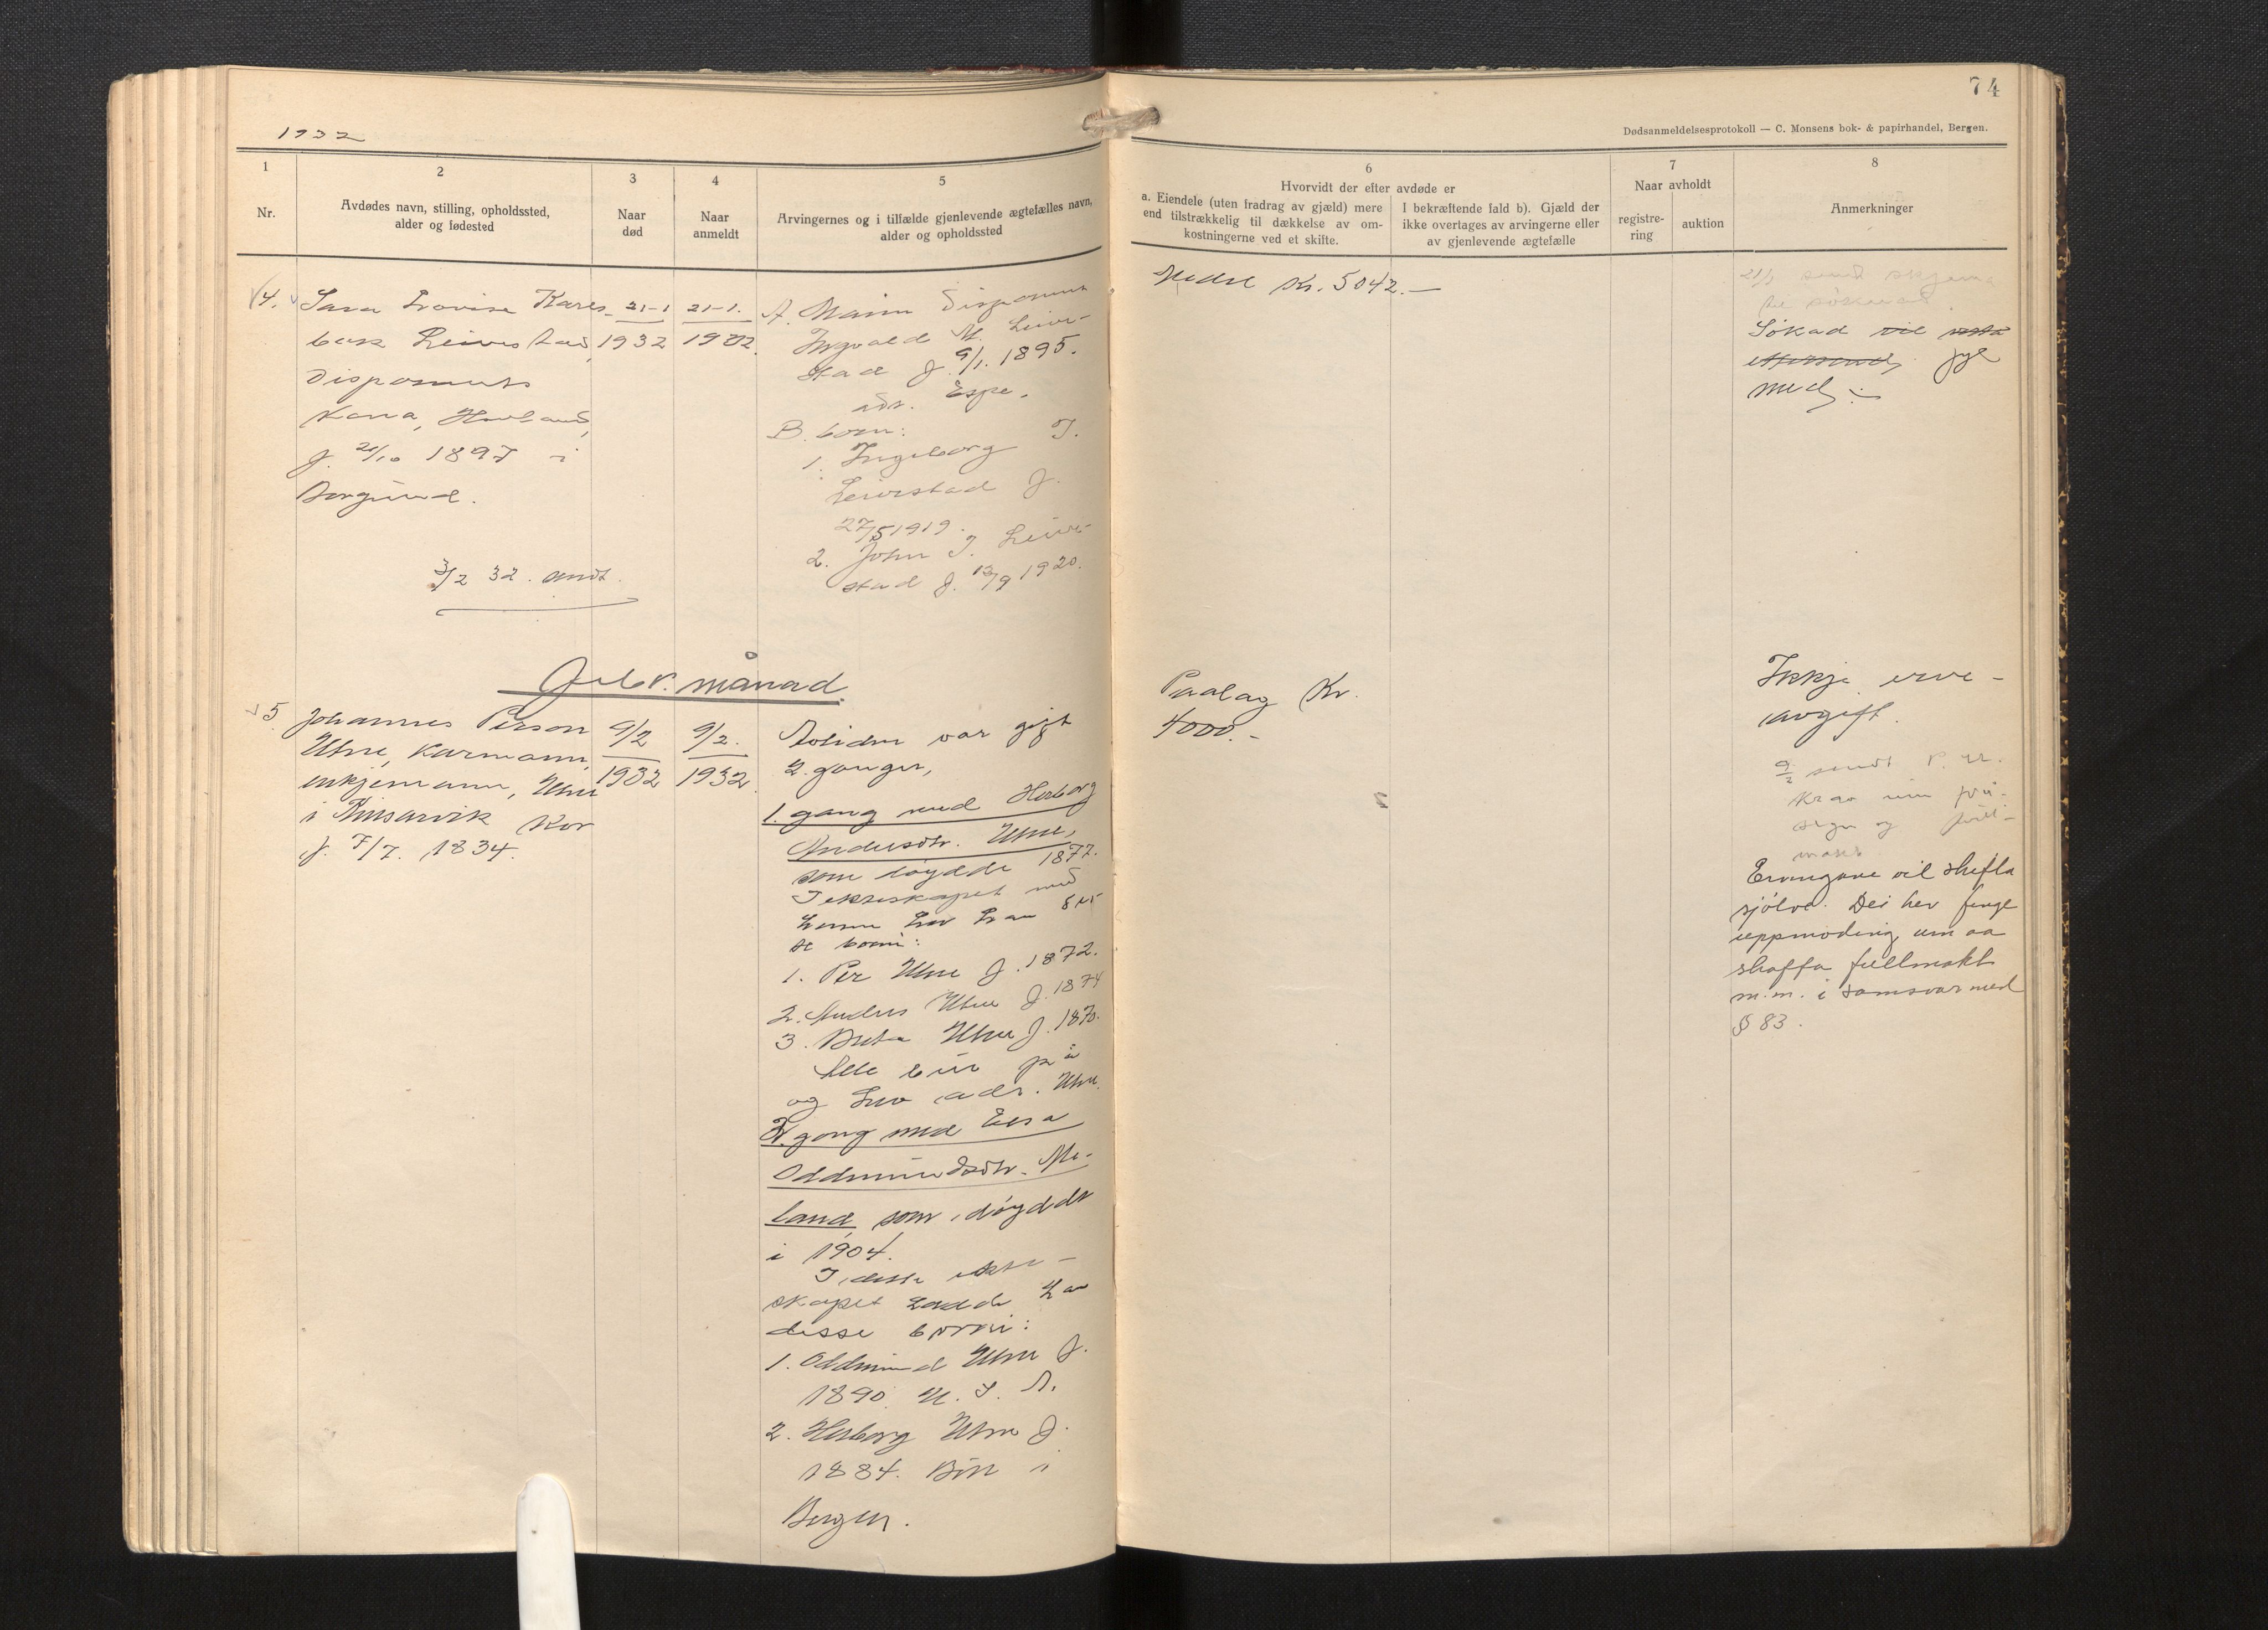 1932
1
Nr.
2
Avdødes navn, stilling, opholdssted,
alder og fødested
3
Naar
død
4
Naar
anmeldt
5
Arvingernes og i tilfælde gjenlevende ægtefælles navn,
alder og opholdssted
4.
Sara Lovise Kares-
bak Leivestad,
disponents
kona, Hovland,
f. 21/10 1897 i
Borgund.
21-1
1932
21-1.
1932.
A. Mann disponent
Ingvald M. Leive-
stad f. 9/1. 1895.
adr. Espe.
B. born:
1. Ingeborg I.
Leivestad f.
27/5 1919.
2. John I. Leive-
stad f. 13/9 1920.
3/2 32. andt.
Febr. månad.
5.
Johannes Person
Utne, Kårmann,
enkjemann, Utne
i Kinsarvik
f. 7/7. 1834.
9/2
1932
9/2.
1932
Avlidne var gift
2. gonger,
1. gang med Herborg
Andersdtr. Utne,
som døydde 1877.
I ekteskapet med
henne hev han
born:
1. Per Utne f. 1872.
2. Anders Utne f. 1874
3. Brita Utne f. 1870.
Alle bur på
og hev adr. Utne.
2. gong med Elsa
Oddmundsdtr. Me-
land, som døydde
i 1904.
I desse ekte-
skapet hadde han
disse borni:
1. Oddmund Utne f.
1890. U. S. A.
2. Herborg Utne f.
1884. Bur i
Bergen.
74
Dødsanmeldelsesprotokoll — C. Monsens bok- & papirhandel, Bergen.
6
Hvorvidt der efter avdøde er
a. Eiendele (uten fradrag av gjæld) mere
end tilstrækkelig til dækkelse av om-
kostningerne ved et skifte.
I bekræftende fald b). Gjæld der
ikke overtages av arvingerne eller
av gjenlevende ægtefælle
7
Naar avholdt
registre-
ring
auktion
8
Anmerkninger
Kr. 5042.—
21/1 sendt skjema
Paalag Kr.
4000.-
Ikkje erve-
avgift.
9/2 sendt
krav um
og full-
Ervingane vil skifta
sjølve. Dei hev fenge
uppmoding um aa
skaffa fullmakt
m.m. i samsvar med
§ 83.